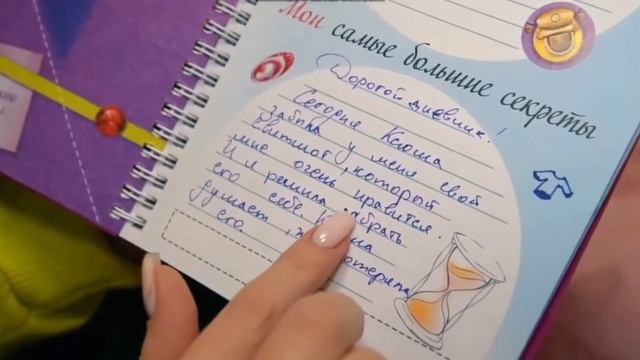 Мои самые большие секреты
Дорогой дневник!
Сегодня Ксюша
забыла у меня свой
бантмот, который
мне очень нравится.
И я решила забрать
его себе.
думает, потеряла
его